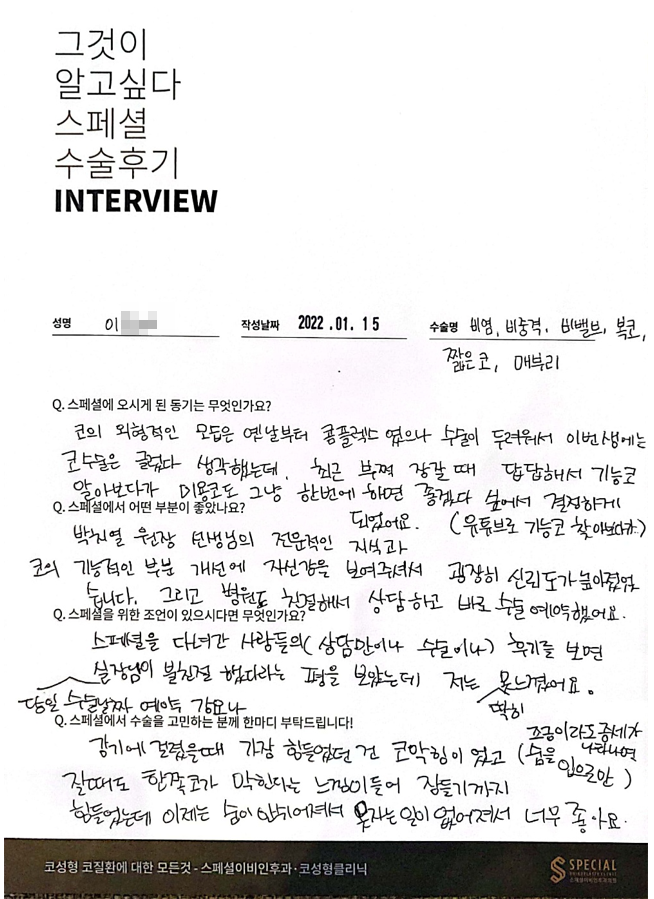 그것이
알고싶다
스페셜
수술후기
INTERVIEW
성명 이
작성날짜 2022.01.15
수술명 비염, 비중격, 비밸브, 복코,
짧은코, 매부리
Q. 스페셜에 오시게 된 동기는 무엇인가요?
코의 외형적인 모습은 옛날부터 콤플렉스 였으나 수술이 두려워서 이번생에는
코수술은 글렀다 생각했는데, 최근 부쩍 잠잘 때 답답해서 기능코
알아보다가 미용코도 그냥 한번에 하면 좋겠다 싶어서 결정하게
되었어요. (유튜브로 기능코 찾아보다가)
Q. 스페셜에서 어떤 부분이 좋았나요?
박치열 원장 선생님의 전문적인 지식과
코의 기능적인 부분 개선에 자신감을 보여주셔서 굉장히 신뢰도가 높아졌었
습니다. 그리고 병원도 친절해서 상담하고 바로 수술 예약했어요.
Q. 스페셜을 위한 조언이 있으시다면 무엇인가요?
스페셜을 다녀간 사람들의 (상담만이나 수술이나) 후기를 보면
실장님이 불친절 했다라는 평을 보았는데 저는 못느꼈어요.
딱히
당일 수술날짜 예약 강요나
Q. 스페셜에서 수술을 고민하는 분께 한마디 부탁드립니다!
조금이라도 증세가 나타나면
감기에 걸렸을때 가장 힘들었던 건 코막힘이 었고 (숨을 입으로만)
잘때도 한쪽코가 막힌다는 느낌이들어 잠들기까지
힘들었는데 이제는 숨이 잘쉬어져서 못자는일이 없어져서 너무 좋아요.
코성형 코질환에 대한 모든것 - 스페셜이비인후과 · 코성형클리닉
SPECIAL
스페셜이비인후과의원